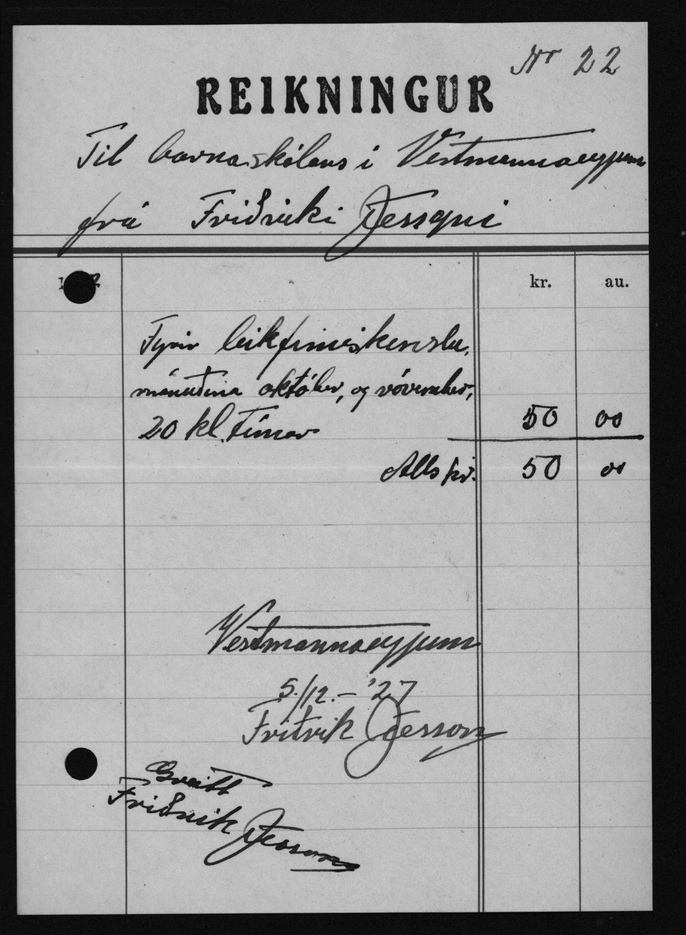 Nr 22
REIKNINGUR
Til barnaskólans í Vestmannaeyjum
frá Friðriki Jessyni
kr. au.
Fyrir leikfimiskenslu,
mánuðina október, og nóvember,
20 kl. tímar 50 00
Alls kr. 50 00
Vestmannaeyjum
5./12.- '27
Friðrik Jesson
Greitt
Friðrik Jesson